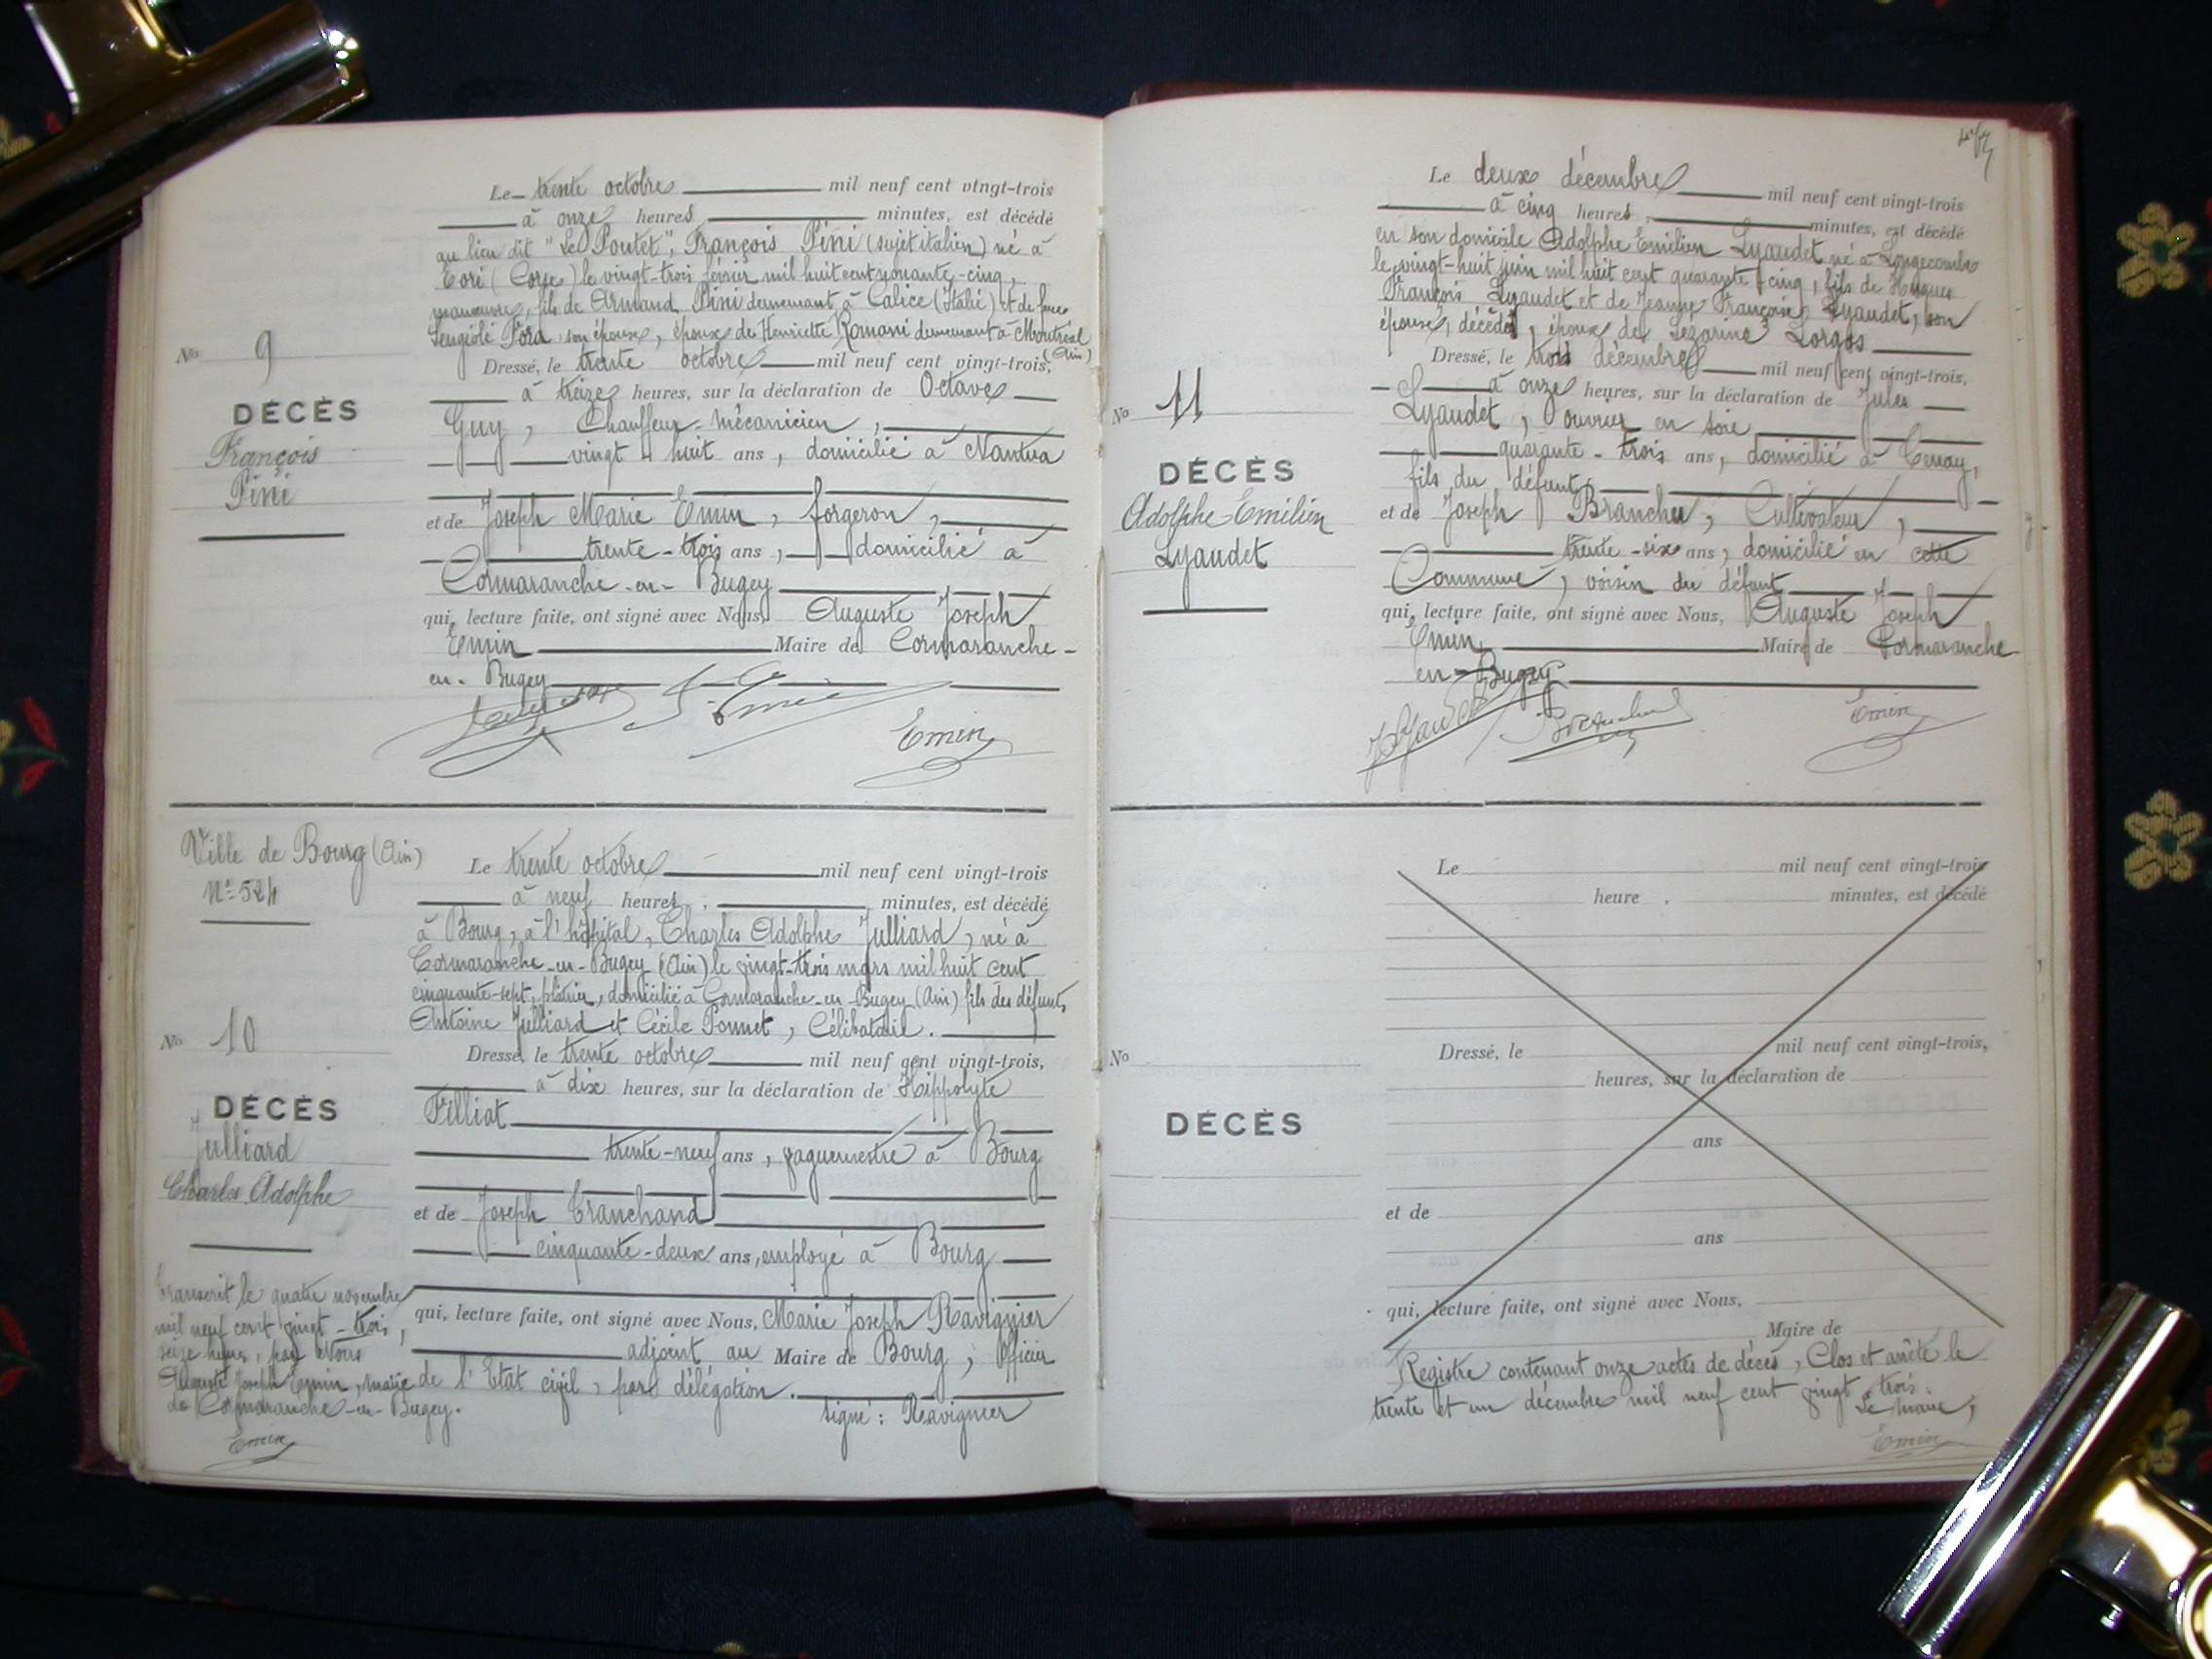 Le trente octobre mil neuf cent vingt-trois
à onze heures minutes, est décédé
au lieu dit "Le Poutet", François Pini (sujet italien) né à
(Corse) le vingt-trois février mil huit cent nonante-cinq,
manœuvre, fils de Armand Pini demeurant à Calice (Italie) et de
son épouse, époux de Henriette Romani demeurant à Montréal
(Ain)
No 9
DÉCÈS
François
Pini
Dressé, le trente octobre mil neuf cent vingt-trois,
à treize heures, sur la déclaration de Octave
Guy, Chauffeur-mécanicien,
vingt huit ans, domicilié à Nantua
et de Joseph Marie Emin, forgeron,
trente-trois ans, domicilié à
Cormaranche-en-Bugey
qui, lecture faite, ont signé avec Nous, Auguste Joseph
Emin Maire de Cormaranche-
en-Bugey
Emin
Ville de Bourg (Ain)
No 524
Le trente octobre mil neuf cent vingt-trois
à neuf heures, minutes, est décédé
à Bourg, à l'hôpital, Charles Adolphe Julliard, né à
Cormaranche-en-Bugey (Ain) le vingt-trois mars mil huit cent
cinquante-sept, plâtrier, domicilié à Cormaranche-en-Bugey (Ain) fils des défunts
Antoine Julliard et Cécile Ponnet, Célibataire.
No 10
DÉCÈS
Julliard
Charles Adolphe
Dressé, le trente octobre mil neuf cent vingt-trois,
à dix heures, sur la déclaration de Hippolyte
Filliat
trente-neuf ans, vaguemestre à Bourg
et de Joseph Tranchand
cinquante-deux ans, employé à Bourg
qui, lecture faite, ont signé avec Nous, Marie Joseph Ravignier
adjoint au Maire de Bourg, Officier
de l'Etat civil, par délégation.
signé: Ravignier
Transcrit le quatre novembre
mil neuf cent vingt-trois,
seize heures, par Nous
Auguste Joseph Emin, maire
de Cormaranche-en-Bugey.
Emin
Le deux décembre mil neuf cent vingt-trois
à cinq heures, minutes, est décédé
en son domicile Adolphe Emilien Lyaudet né à Longecombe
le vingt-huit juin mil huit cent quarante cinq, fils de Hugues
François Lyaudet et de Jeanne Françoise Lyaudet, son
épouse, décédés, époux de Lézarine Lorgos
No 11
DÉCÈS
Adolphe Emilien
Lyaudet
Dressé, le trois décembre mil neuf cent vingt-trois,
à onze heures, sur la déclaration de Jules
Lyaudet, ouvrier en soie
quarante-trois ans, domicilié à Tenay,
fils du défunt
et de Joseph Branche, Cultivateur,
trente-six ans, domicilié en cette
Commune, voisin du défunt
qui, lecture faite, ont signé avec Nous, Auguste Joseph
Emin, Maire de Cormaranche
en-Bugey
Emin
Le mil neuf cent vingt-trois
heure , minutes, est décédé
No
DÉCÈS
Dressé, le mil neuf cent vingt-trois,
heures, sur la déclaration de
ans
et de
ans
qui, lecture faite, ont signé avec Nous,
Maire de
Registre contenant onze actes de décès, Clos et arrêté le
trente et un décembre mil neuf cent vingt trois.
Le Maire,
Emin